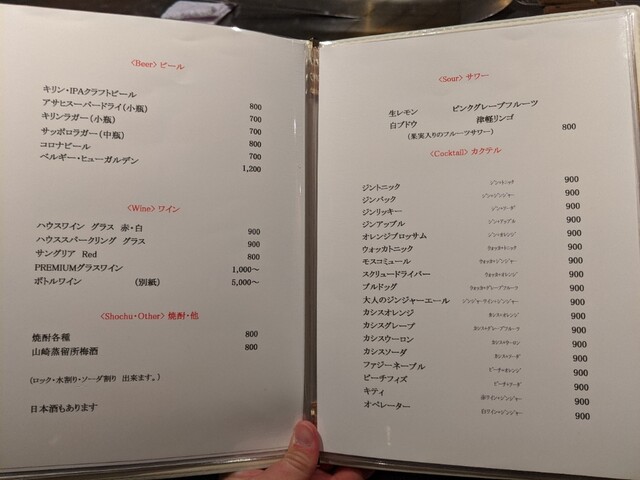 <Beer> ビール
キリン・IPAクラフトビール 800
アサヒスーパードライ(小瓶) 700
キリンラガー(小瓶) 700
サッポロラガー(中瓶) 800
コロナビール 700
ベルギー・ヒューガルデン 1,200
<Wine> ワイン
ハウスワイン グラス 赤・白 900
ハウススパークリング グラス 900
サングリア Red 800
PREMIUMグラスワイン 1,000～
ボトルワイン (別紙) 5,000～
<Shochu・Other> 焼酎・他
焼酎各種 800
山崎蒸留所梅酒 800
(ロック・水割り・ソーダ割り 出来ます。)
日本酒もあります
<Sour> サワー
生レモン ピンクグレープフルーツ
白ブドウ 津軽リンゴ 800
(果実入りのフルーツサワー)
<Cocktail> カクテル
ジントニック ジン+トニック 900
ジンバック ジン+ジンジャー 900
ジンリッキー ジン+ソーダ 900
ジンアップル ジン+アップル 900
オレンジブロッサム ジン+オレンジ 900
ウォッカトニック ウォッカ+トニック 900
モスコミュール ウォッカ+ジンジャー 900
スクリュードライバー ウォッカ+オレンジ 900
ブルドッグ ウォッカ+グレープフルーツ 900
大人のジンジャーエール ジンジャーワイン+ジンジャー 900
カシスオレンジ カシス+オレンジ 900
カシスグレープ カシス+グレープフルーツ 900
カシスウーロン カシス+ウーロン 900
カシスソーダ カシス+ソーダ 900
ファジーネーブル ピーチ+オレンジ 900
ピーチフィズ ピーチ+ソーダ 900
キティ 赤ワイン+ジンジャー 900
オペレーター 白ワイン+ジンジャー 900